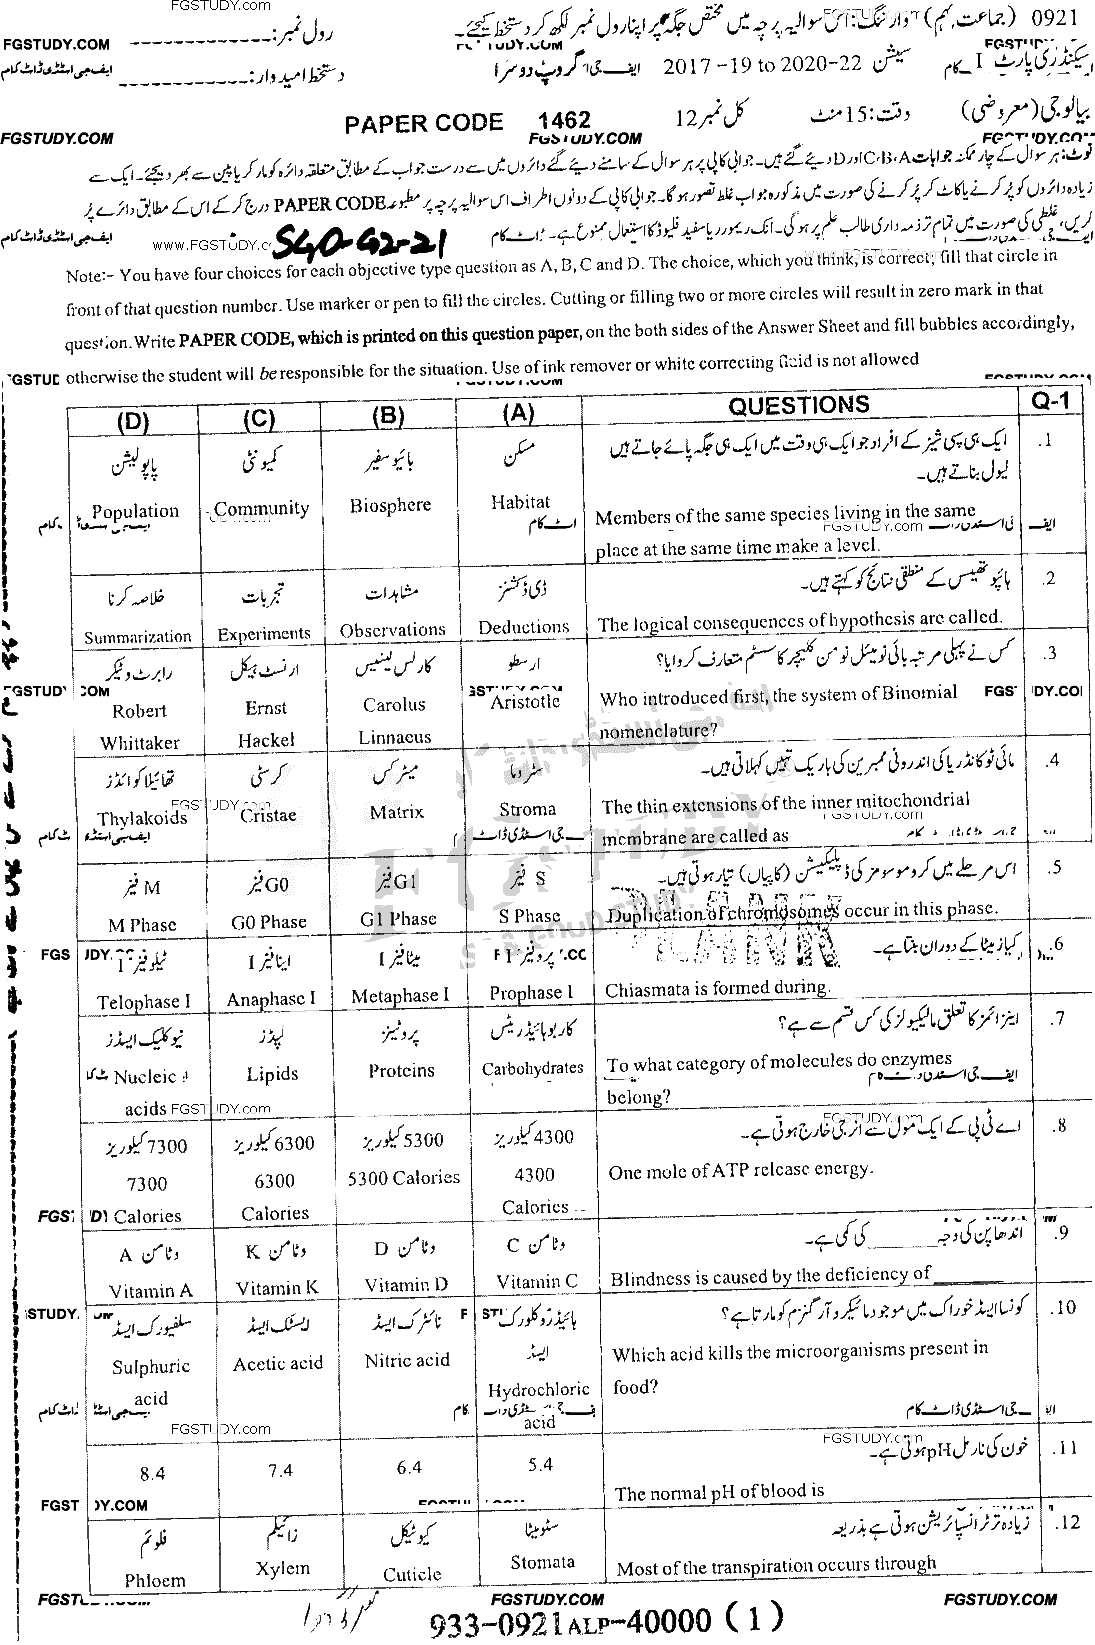 FGSTUDY.com
0921 (جماعت نہم) وارننگ: اس سوالیہ پرچہ میں مختص جگہ پر اپنا رول نمبر لکھ کر دستخط کیجئے۔ رول نمبر:
FGSTUDY.COM
سیکنڈری پارٹ I سیشن 2017-19 to 2020-22 ایف جی گروپ دوسرا دستخط امیدوار:
ایف جی اسٹڈی ڈاٹ کام
بیالوجی (معروضی) وقت: 15 منٹ کل نمبر 12 PAPER CODE 1462
FGSTUDY.COM FGSTUDY.COM
نوٹ: ہر سوال کے چار ممکنہ جوابات C، B، A اور D دیئے گئے ہیں۔ جوابی کاپی پر ہر سوال کے سامنے دیئے گئے دائروں میں سے درست جواب کے مطابق متعلقہ دائرہ کو مارکر یا پین سے بھر دیجئے۔ ایک سے
زیادہ دائروں کو پُر کرنے یا کاٹ کر پُر کرنے کی صورت میں مذکورہ جواب غلط تصور ہوگا۔ جوابی کاپی کے دونوں اطراف اس سوالیہ پرچہ پر مطبوعہ PAPER CODE درج کر کے اس کے مطابق دائرے پُر
کریں، غلطی کی صورت میں تمام تر ذمہ داری طالب علم پر ہوگی۔ انک ریموور یا سفید فلیوڈ کا استعمال ممنوع ہے۔
ایف جی اسٹڈی ڈاٹ کام www.FGSTUDY.c SGD-G2-21
Note:- You have four choices for each objective type question as A, B, C and D. The choice, which you think, is correct; fill that circle in
front of that question number. Use marker or pen to fill the circles. Cutting or filling two or more circles will result in zero mark in that
question. Write PAPER CODE, which is printed on this question paper, on the both sides of the Answer Sheet and fill bubbles accordingly,
otherwise the student will be responsible for the situation. Use of ink remover or white correcting fluid is not allowed
(D) (C) (B) (A) QUESTIONS Q-1
پاپولیشن کمیونٹی بائیوسفیر مسکن ایک ہی سپی شیز کے افراد جو ایک ہی وقت میں ایک ہی جگہ پائے جاتے ہیں .1
لیول بناتے ہیں۔
Population Community Biosphere Habitat Members of the same species living in the same
FGSTUDY.com
place at the same time make a level.
خلاصہ کرنا تجربات مشاہدات ڈی ڈکشنز ہائپوتھیسس کے منطقی نتائج کو کہتے ہیں۔ .2
Summarization Experiments Observations Deductions The logical consequences of hypothesis are called.
رابرٹ وٹیکر ارنسٹ ہیکل کارلس لینیئس ارسطو کس نے پہلی مرتبہ بائی نومیئل نومن کلیچر کا سسٹم متعارف کروایا؟ .3
Robert Ernst Carolus Aristotle Who introduced first, the system of Binomial
Whittaker Hackel Linnaeus nomenclature?
تھائیلاکوائڈز کرسٹی میٹرکس سٹروما مائی ٹوکانڈریا کی اندرونی ممبرین کی باریک تہیں کہلاتی ہیں۔ .4
FGSTUDY.com
Thylakoids Cristae Matrix Stroma The thin extensions of the inner mitochondrial
FGSTUDY.com
membrane are called as
M فیز G0 فیز G1 فیز S فیز اس مرحلے میں کروموسومز کی ڈپلیکیشن (کاپیاں) تیار ہوتی ہیں۔ .5
M Phase G0 Phase G1 Phase S Phase Duplication of chromosomes occur in this phase.
ٹیلوفیز I اینافیز I میٹافیز I پروفیز I کیازمیٹا کے دوران بنتا ہے۔ .6
Telophase I Anaphase I Metaphase I Prophase I Chiasmata is formed during.
نیوکلیک ایسڈز لپڈز پروٹینز کاربوہائیڈریٹس اینزائمز کا تعلق مالیکیولز کی کس قسم سے ہے؟ .7
Nucleic Lipids Proteins Carbohydrates To what category of molecules do enzymes
acids belong?
FGSTUDY.com
7300 کیلوریز 6300 کیلوریز 5300 کیلوریز 4300 کیلوریز اے ٹی پی کے ایک مول سے انرجی خارج ہوتی ہے۔ .8
7300 6300 5300 Calories 4300 One mole of ATP release energy.
Calories Calories Calories
وٹامن A وٹامن K وٹامن D وٹامن C اندھا پن کی وجہ ______ کی کمی ہے۔ .9
Vitamin A Vitamin K Vitamin D Vitamin C Blindness is caused by the deficiency of ______
سلفیورک ایسڈ ایسٹک ایسڈ نائٹرک ایسڈ ہائیڈروکلورک ایسڈ کونسا ایسڈ خوراک میں موجود مائیکرو آرگنزم کو مارتا ہے؟ .10
Sulphuric Acetic acid Nitric acid Hydrochloric Which acid kills the microorganisms present in
acid acid food?
FGSTUDY.com
خون کی نارمل pH ہوتی ہے۔ .11
8.4 7.4 6.4 5.4 The normal pH of blood is
فلوئم زائیلم کیوٹیکل سٹومیٹا زیادہ تر ٹرانسپائریشن ہوتی ہے بذریعہ .12
Phloem Xylem Cuticle Stomata Most of the transpiration occurs through
FGSTUDY.COM FGSTUDY.COM
933-0921 ALP-40000 (1)